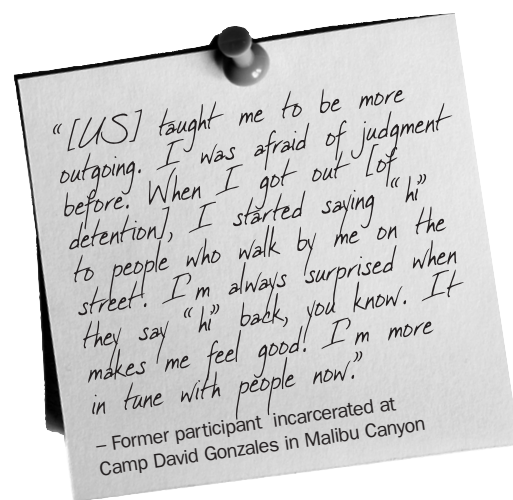 “[US] taught me to be more
outgoing. I was afraid of judgment
before. When I got out [of
detention], I started saying “hi”
to people who walk by me on the
street. I’m always surprised when
they say “hi” back, you know. It
makes me feel good! I’m more
in tune with people now.”
– Former participant incarcerated at
Camp David Gonzales in Malibu Canyon